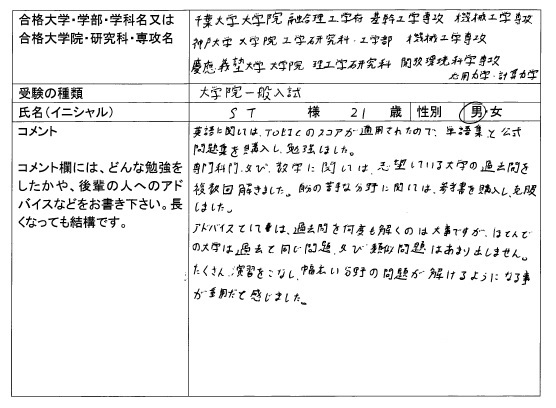 合格大学・学部・学科名又は
合格大学院・研究科・専攻名
千葉大学大学院 融合理工学府 基幹工学専攻 機械工学専攻
神戸大学 大学院 工学研究科・工学部 機械工学専攻
慶應義塾大学 大学院 理工学研究科 開放環境科学専攻
応用力学・計算力学
受験の種類
大学院一般入試
氏名(イニシャル)
S T 様 21 歳 性別 男・女
コメント
コメント欄には、どんな勉強を
したかや、後輩の人へのアド
バイスなどをお書き下さい。長
くなっても結構です。
英語に関しては、TOEICのスコアが適用されたので、単語集と公式
問題集を購入し、勉強しました。
専門科門、及び、数学に関しては、志望している大学の過去問を
複数回解きました。苦手な分野に関しては、参考書を購入し、克服
しました。
アドバイスとしては、過去問を何度も解くのは大事ですが、ほとんど
の大学は過去と同じ問題、及び類似問題はあまり出しません。
たくさん演習をこなし、幅広い分野の問題が解けるようになる事
が重要だと感じました。